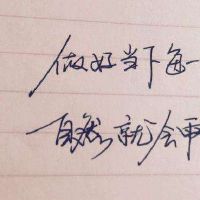 做好当下每一
自然就会